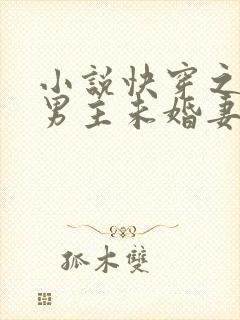 小說快穿之
男主未婚妻
孤木雙